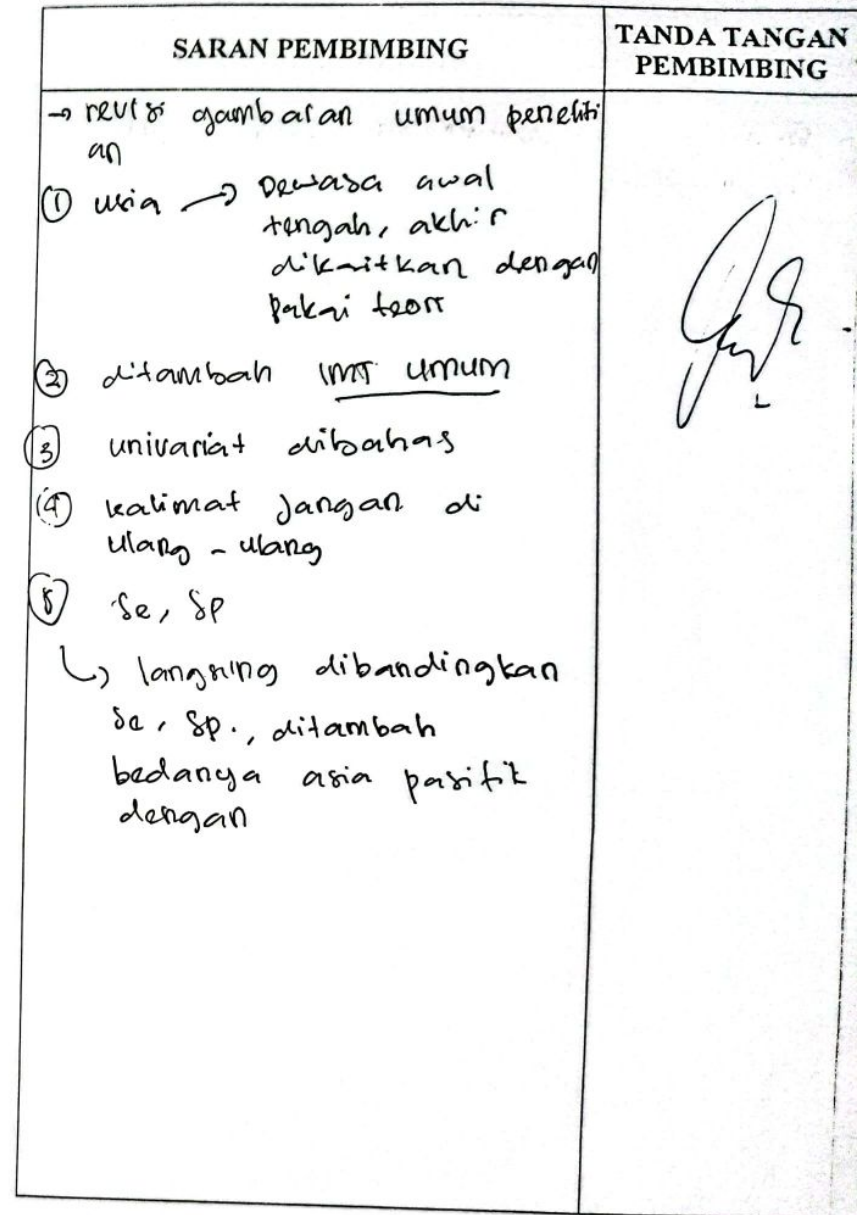 SARAN PEMBIMBING
TANDA TANGAN
PEMBIMBING
→ revisi gambaran umum peneliti
an
① usia → Dewasa awal
tengah, akhir
dikaitkan dengan
pakai teori
② ditambah IMT umum
③ univariat dibahas
④ kalimat jangan di
ulang - ulang
⑤ Se, Sp
↳ langsung dibandingkan
Se, Sp., ditambah
bedanya asia pasifik
dengan